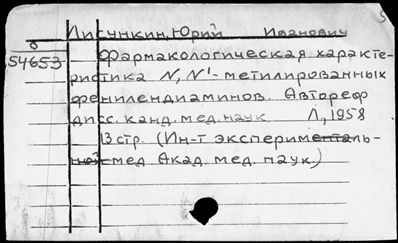 Лисункин, Юрий Иванович
б
54653
Фармакологическая характе-
ристика N, N'- метилированных
фенилендиаминов. Автореф
дисс. канд. мед. наук Л, 1958
13 стр. (Ин-т эксперименталь-
ной мед Акад. мед. наук.)